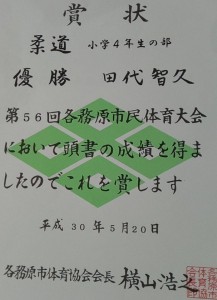 賞状
柔道 小学4年生の部
優勝 田代智久
第56回各務原市民体育大会
において頭書の成績を得ま
したのでこれを賞します
平成30年5月20日
各務原市体育協会会長 横山浩之